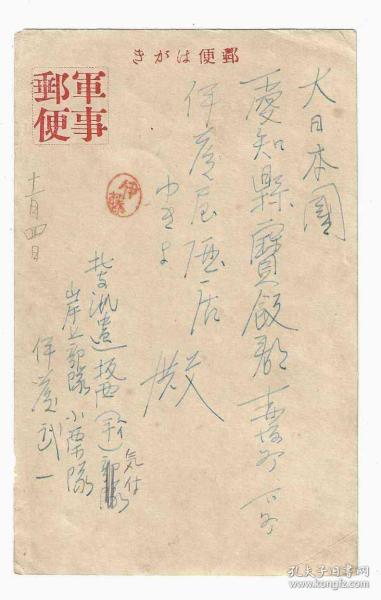 郵便はがき
軍事
郵便
大日本國
愛知縣寶飯郡
伊藤屋酒店
ゆきよ
伊藤
北支派遣坂西(平)部隊
気付
岸上部隊小栗隊
伊藤武一
十一月四日
孔夫子旧书网